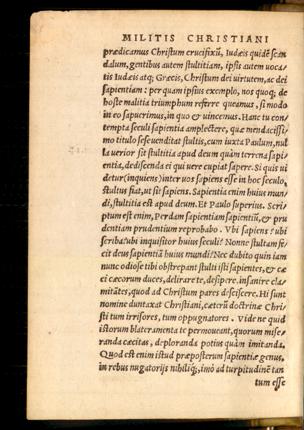 MILITIS CHRISTIANI
prædicamus Christum crucifixũ, Iudæis quidẽ scan
dalum, gentibus autem stultitiam, ipsis autem uoca/
tis Iudæis atq; Græcis, Christum dei uirtutem, ac dei
sapientiam: per quam ipsius exemplo, nos quoq; de
hoste malitia triumphum referre queamus, si modo
in eo sapuerimus, in quo & uincemus. Hanc tu con/
tempta seculi sapientia amplectere, quæ mendacissi/
mo titulo sese uenditat stultis, cum iuxta Paulum, nul
la uerior sit stultitia apud deum quàm terrena sapi/
entia, dediscenda ei qui uere cupiat sapere. Si quis ui
detur (inquiens) inter uos sapiens esse in hoc seculo,
stultus fiat, ut sit sapiens. Sapientia enim huius mun/
di, stultitia est apud deum. Et Paulo superius. Scri/
ptum est enim, Perdam sapientiam sapientiũ, & pru
dentiam prudentium reprobabo. Vbi sapiens? ubi
scriba? ubi inquisitor huius seculi? Nonne stultam fe/
cit deus sapientiã huius mundi? Nec dubito quin iam
nunc odiose tibi obstrepant stulti isti sapientes, & cæ
ci cæcorum duces, delirare te, desipere, insanire cla/
mitãtes, quod ad Christum pares desciscere. Hi sunt
nomine duntaxat Christiani, cæterũ doctrinæ Chri/
sti tum irrisores, tum oppugnatores. Vide ne quid
istorum blateramenta te permoueant, quorum mise/
randa cæcitas, deploranda potius quàm imitanda.
Quod est enim istud præposterum sapientiæ genus,
in rebus nugatorijs nihiliq́;, imò ad turpitudinẽ tan
tum esse